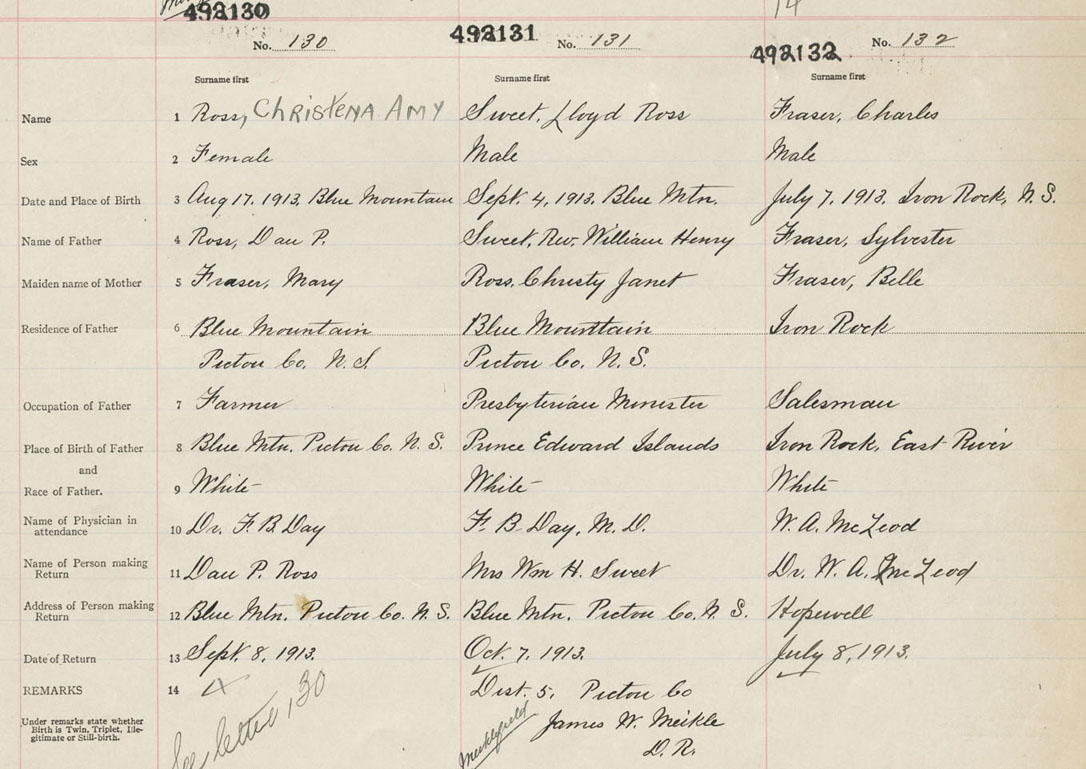 492130 492131 492132
No. 130 No. 131 No. 132
Surname first Surname first Surname first
Name 1 Ross, Christena Amy Sweet, Lloyd Ross Fraser, Charles
Sex 2 Female Male Male
Date and Place of Birth 3 Aug 17, 1913, Blue Mountain Sept. 4, 1913, Blue Mtn. July 7, 1913. Iron Rock, N. S.
Name of Father 4 Ross, Dan P. Sweet, Rev. William Henry Fraser, Sylvester
Maiden name of Mother 5 Fraser, Mary Ross, Christy Janet Fraser, Belle
Residence of Father 6 Blue Mountain Blue Mountain Iron Rock
Pictou Co. N. S. Pictou Co. N. S.
Occupation of Father 7 Farmer Presbyterian Minister Salesman
Place of Birth of Father 8 Blue Mtn. Pictou Co. N. S. Prince Edward Islands Iron Rock, East River
and
Race of Father. 9 White White White
Name of Physician in attendance 10 Dr. F. B. Day F. B. Day, M. D. W. A. McLeod
Name of Person making Return 11 Dan P. Ross Mrs Wm H. Sweet Dr. W. A. McLeod
Address of Person making Return 12 Blue Mtn. Pictou Co. N. S. Blue Mtn. Pictou Co. N. S. Hopewell
Date of Return 13 Sept. 8, 1913. Oct. 7, 1913. July 8, 1913.
REMARKS 14 Dist. 5, Pictou Co
Under remarks state whether Birth is Twin, Triplet, Ille-
gitimate or Still-birth.
See letter 130
James W. Meikle
D. R.
Meiklefield
14